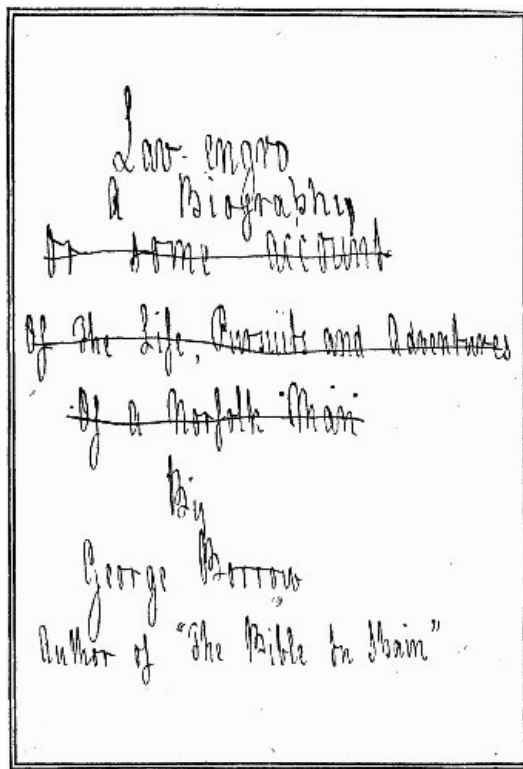 Lav-engro
A Biography
Or some account
Of the Life, Pursuits and Adventures
Of a Norfolk Man
By
George Borrow
Author of "The Bible In Spain"